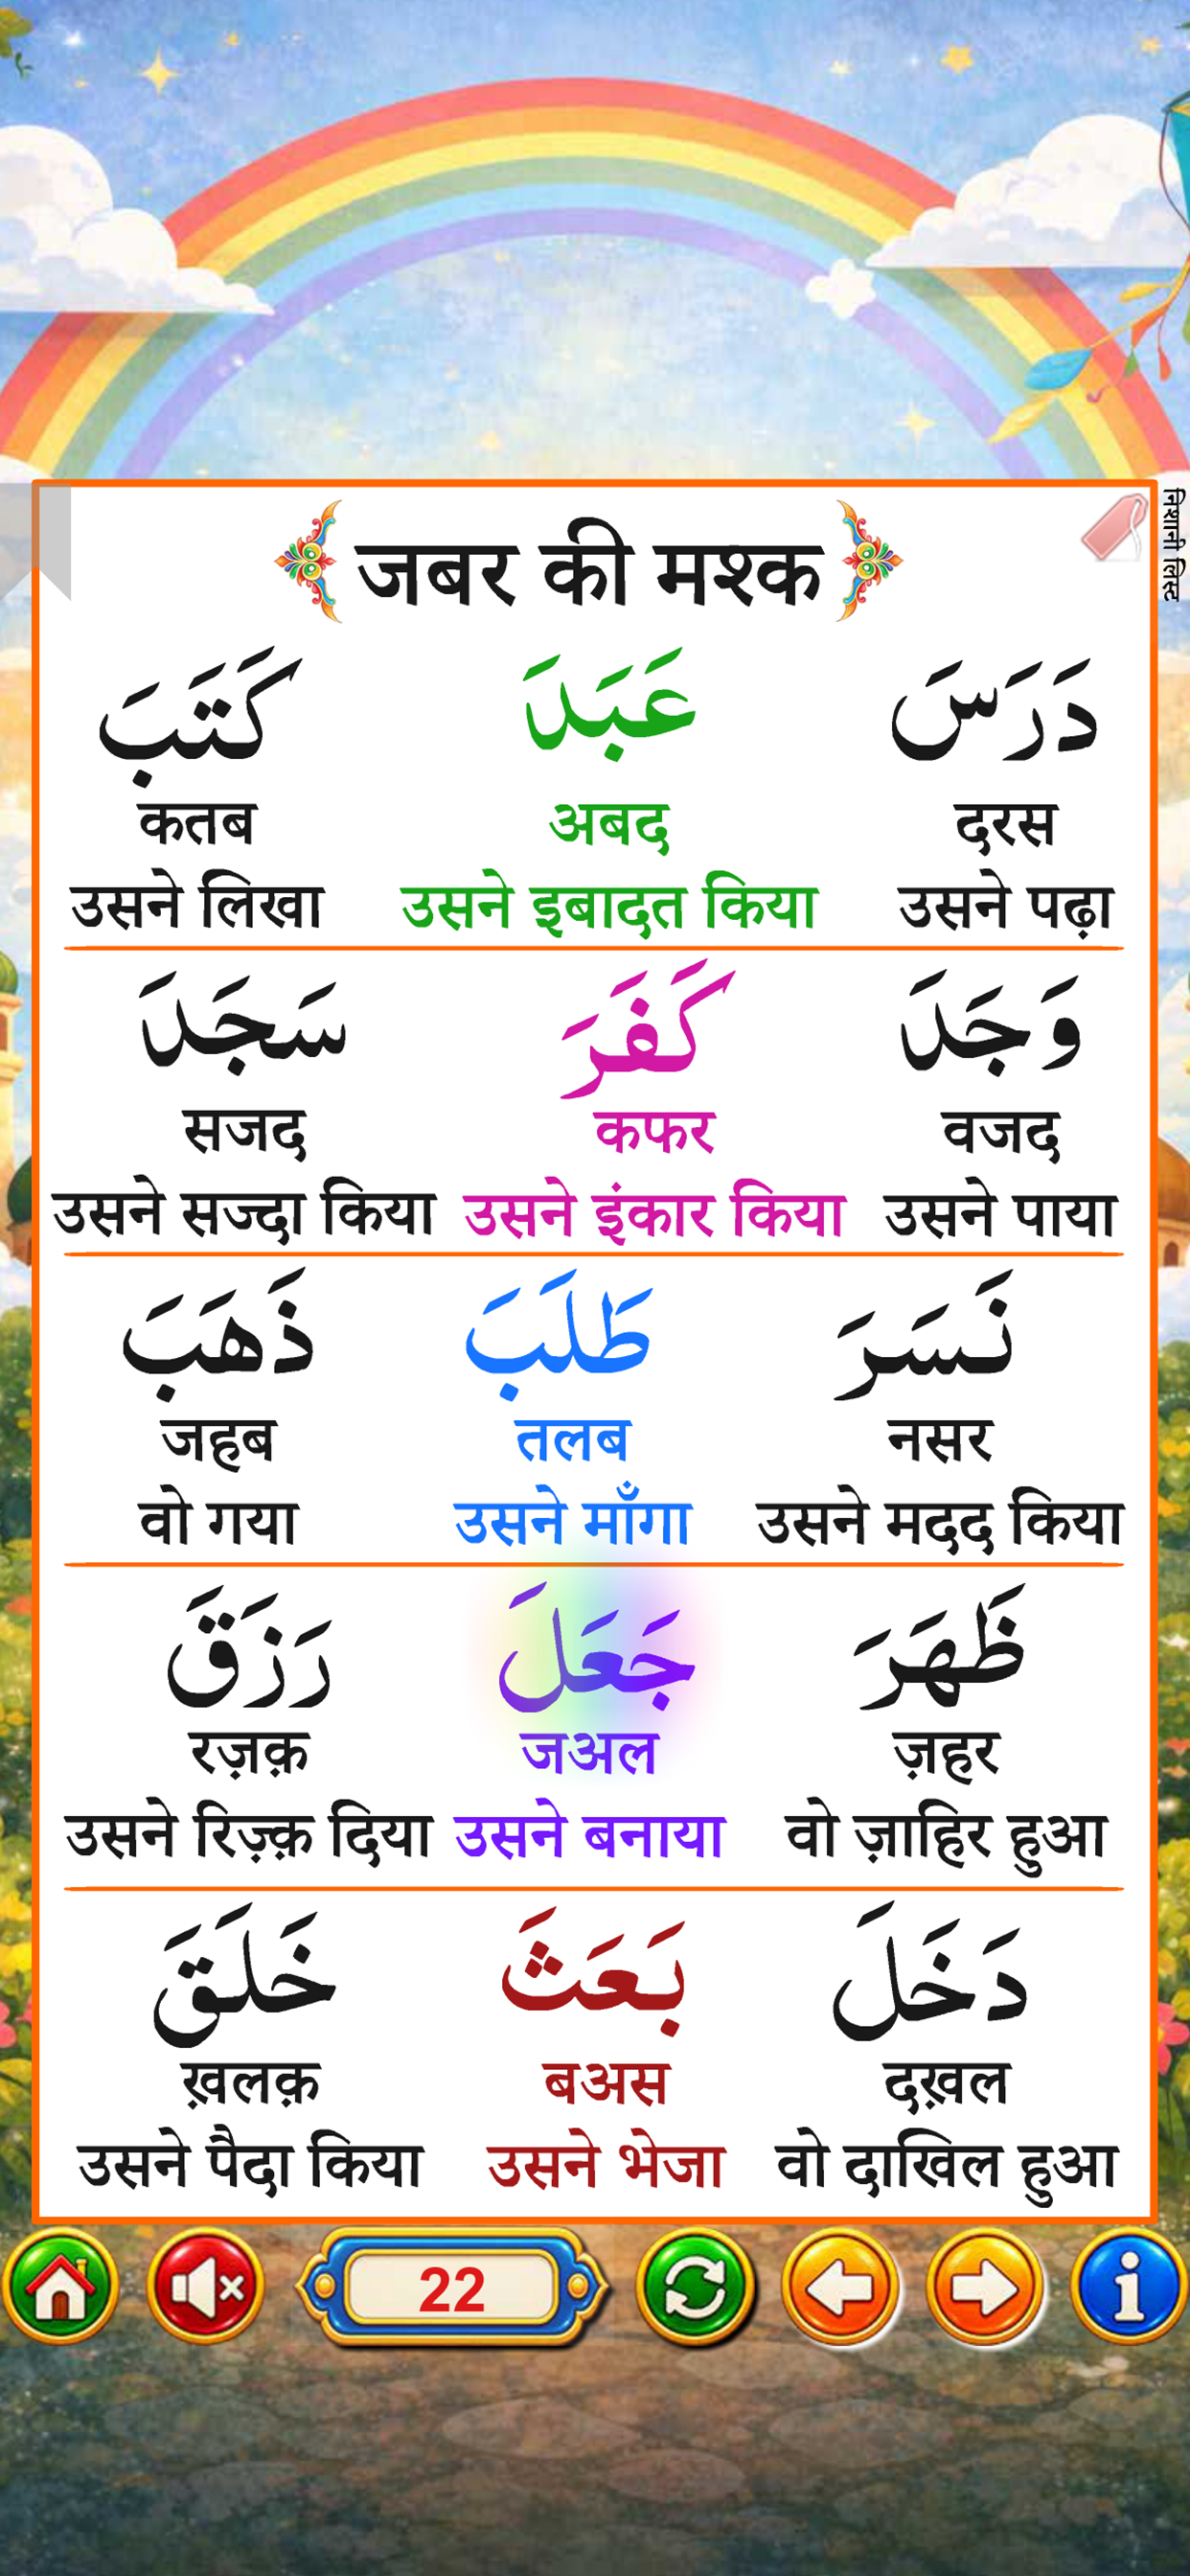 जबर की मश्क
निशानी लिस्ट
دَرَسَ عَبَدَ كَتَبَ
दरस अबद कतब
उसने पढ़ा उसने इबादत किया उसने लिखा
وَجَدَ كَفَرَ سَجَدَ
वजद कफर सजद
उसने पाया उसने इंकार किया उसने सज्दा किया
نَسَرَ طَلَبَ ذَهَبَ
नसर तलब जहब
उसने मदद किया उसने माँगा वो गया
ظَهَرَ جَعَلَ رَزَقَ
ज़हर जअल रज़क़
वो ज़ाहिर हुआ उसने बनाया उसने रिज़्क़ दिया
دَخَلَ بَعَثَ خَلَقَ
दख़ल बअस ख़लक़
वो दाखिल हुआ उसने भेजा उसने पैदा किया
22